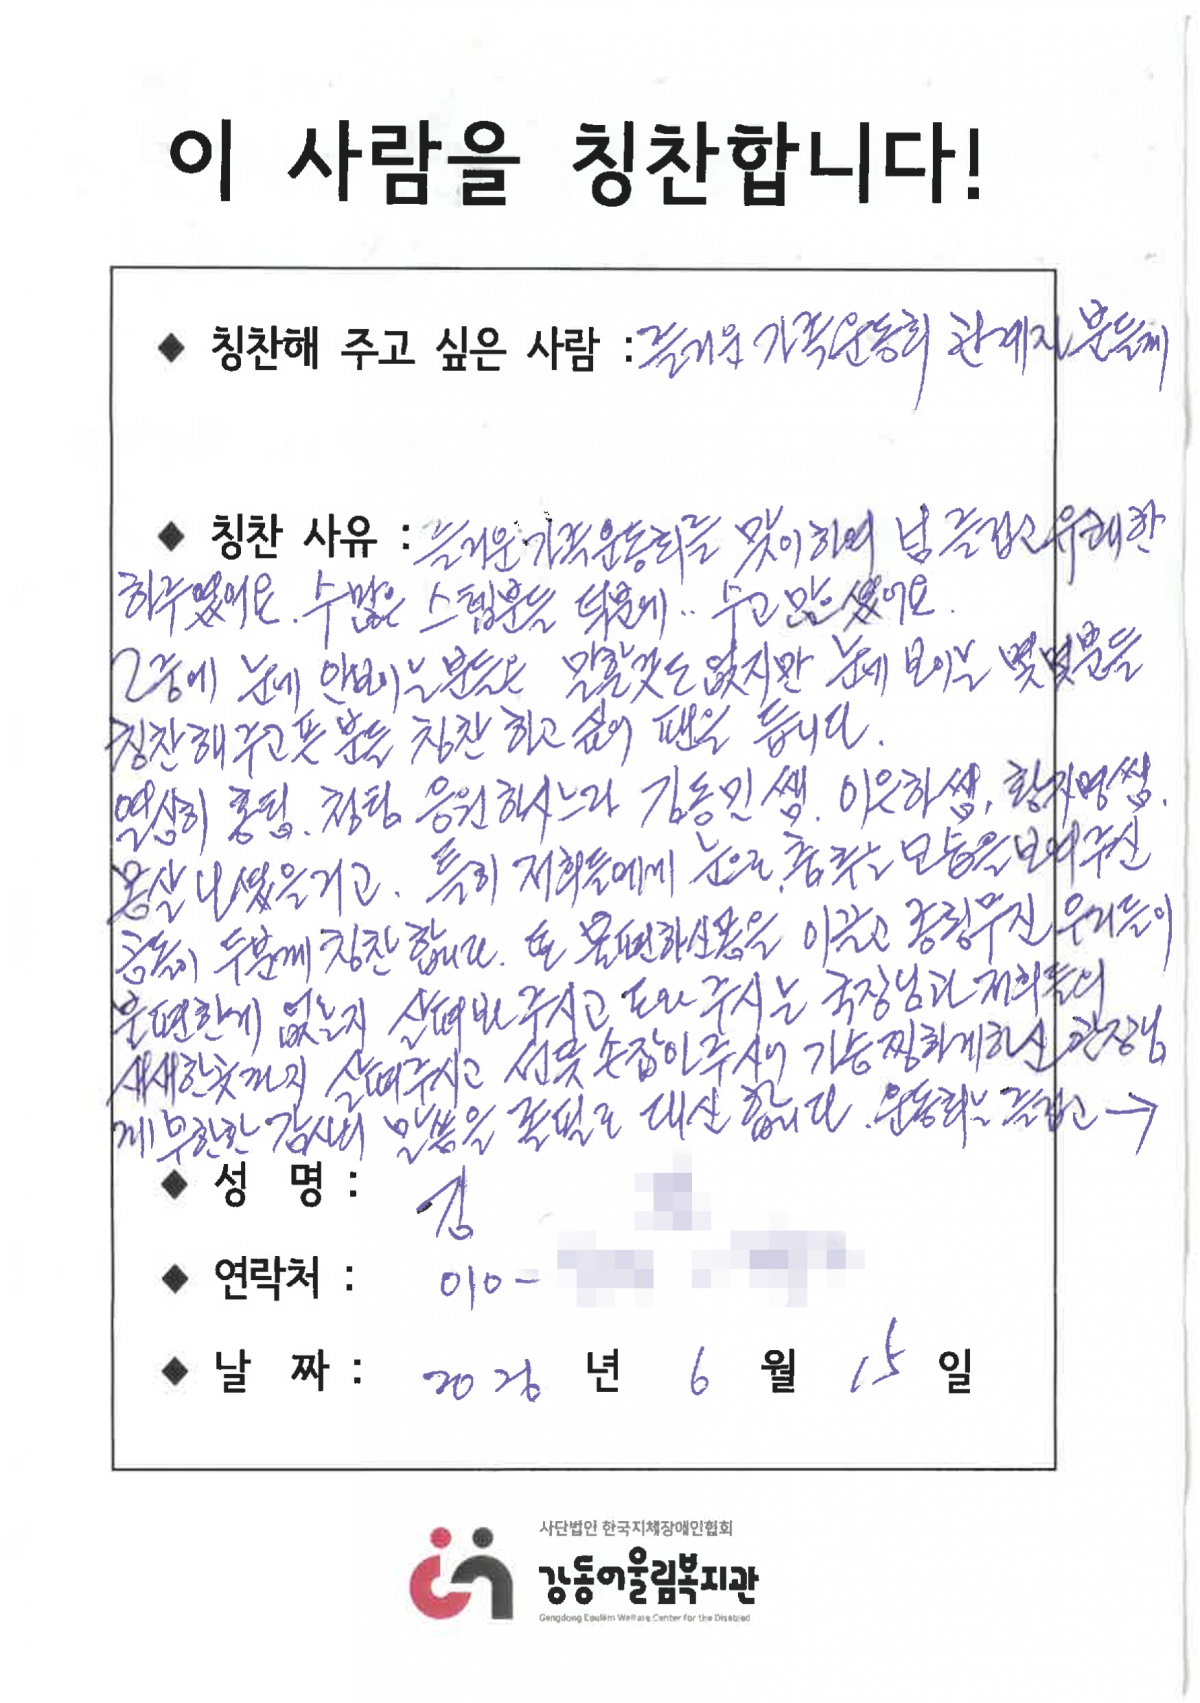 이 사람을 칭찬합니다!
◆ 칭찬해 주고 싶은 사람 : 즐거운 가족운동회 관계자 분들께
◆ 칭찬 사유 : 즐거운 가족운동회를 맞이하여 넘 즐겁고 유쾌한
하루였어요. 수많은 스텝분들 덕분에.. 수고 많으셨어요.
그중에 눈에 안보이는분들은 말할것도 없지만 눈에 보이는 몇몇분들
칭찬해주고픈 분들 칭찬 하고 싶어 팬을 듭니다.
열심히 홍팀. 청팀 응원하시느라 김동민쌤. 이은하쌤, 황지명쌤.
몸살 나셨을거고. 특히 저희들에게 눈으로 춤추는 모습을 보여주신
두분께 칭찬합니다. 또 불편하신몸을 이끌고 종횡무진 우리들이
불편한게 없는지 살펴봐 주시고 도와 주시는 국장님과 저희들의
세세한것까지 살펴주시고 선뜻 손잡아주시어 가슴찡하게하신 관장님
께 무한한 감사의 말씀을 졸필로 대신 합니다. 운동회는 즐겁고 →
◆ 성 명 : 김
◆ 연락처 : 010-
◆ 날 짜 : 20 년 6 월 15 일
사단법인 한국지체장애인협회
강동어울림복지관
Gangdong Eoullim Welfare Center for the Disabled